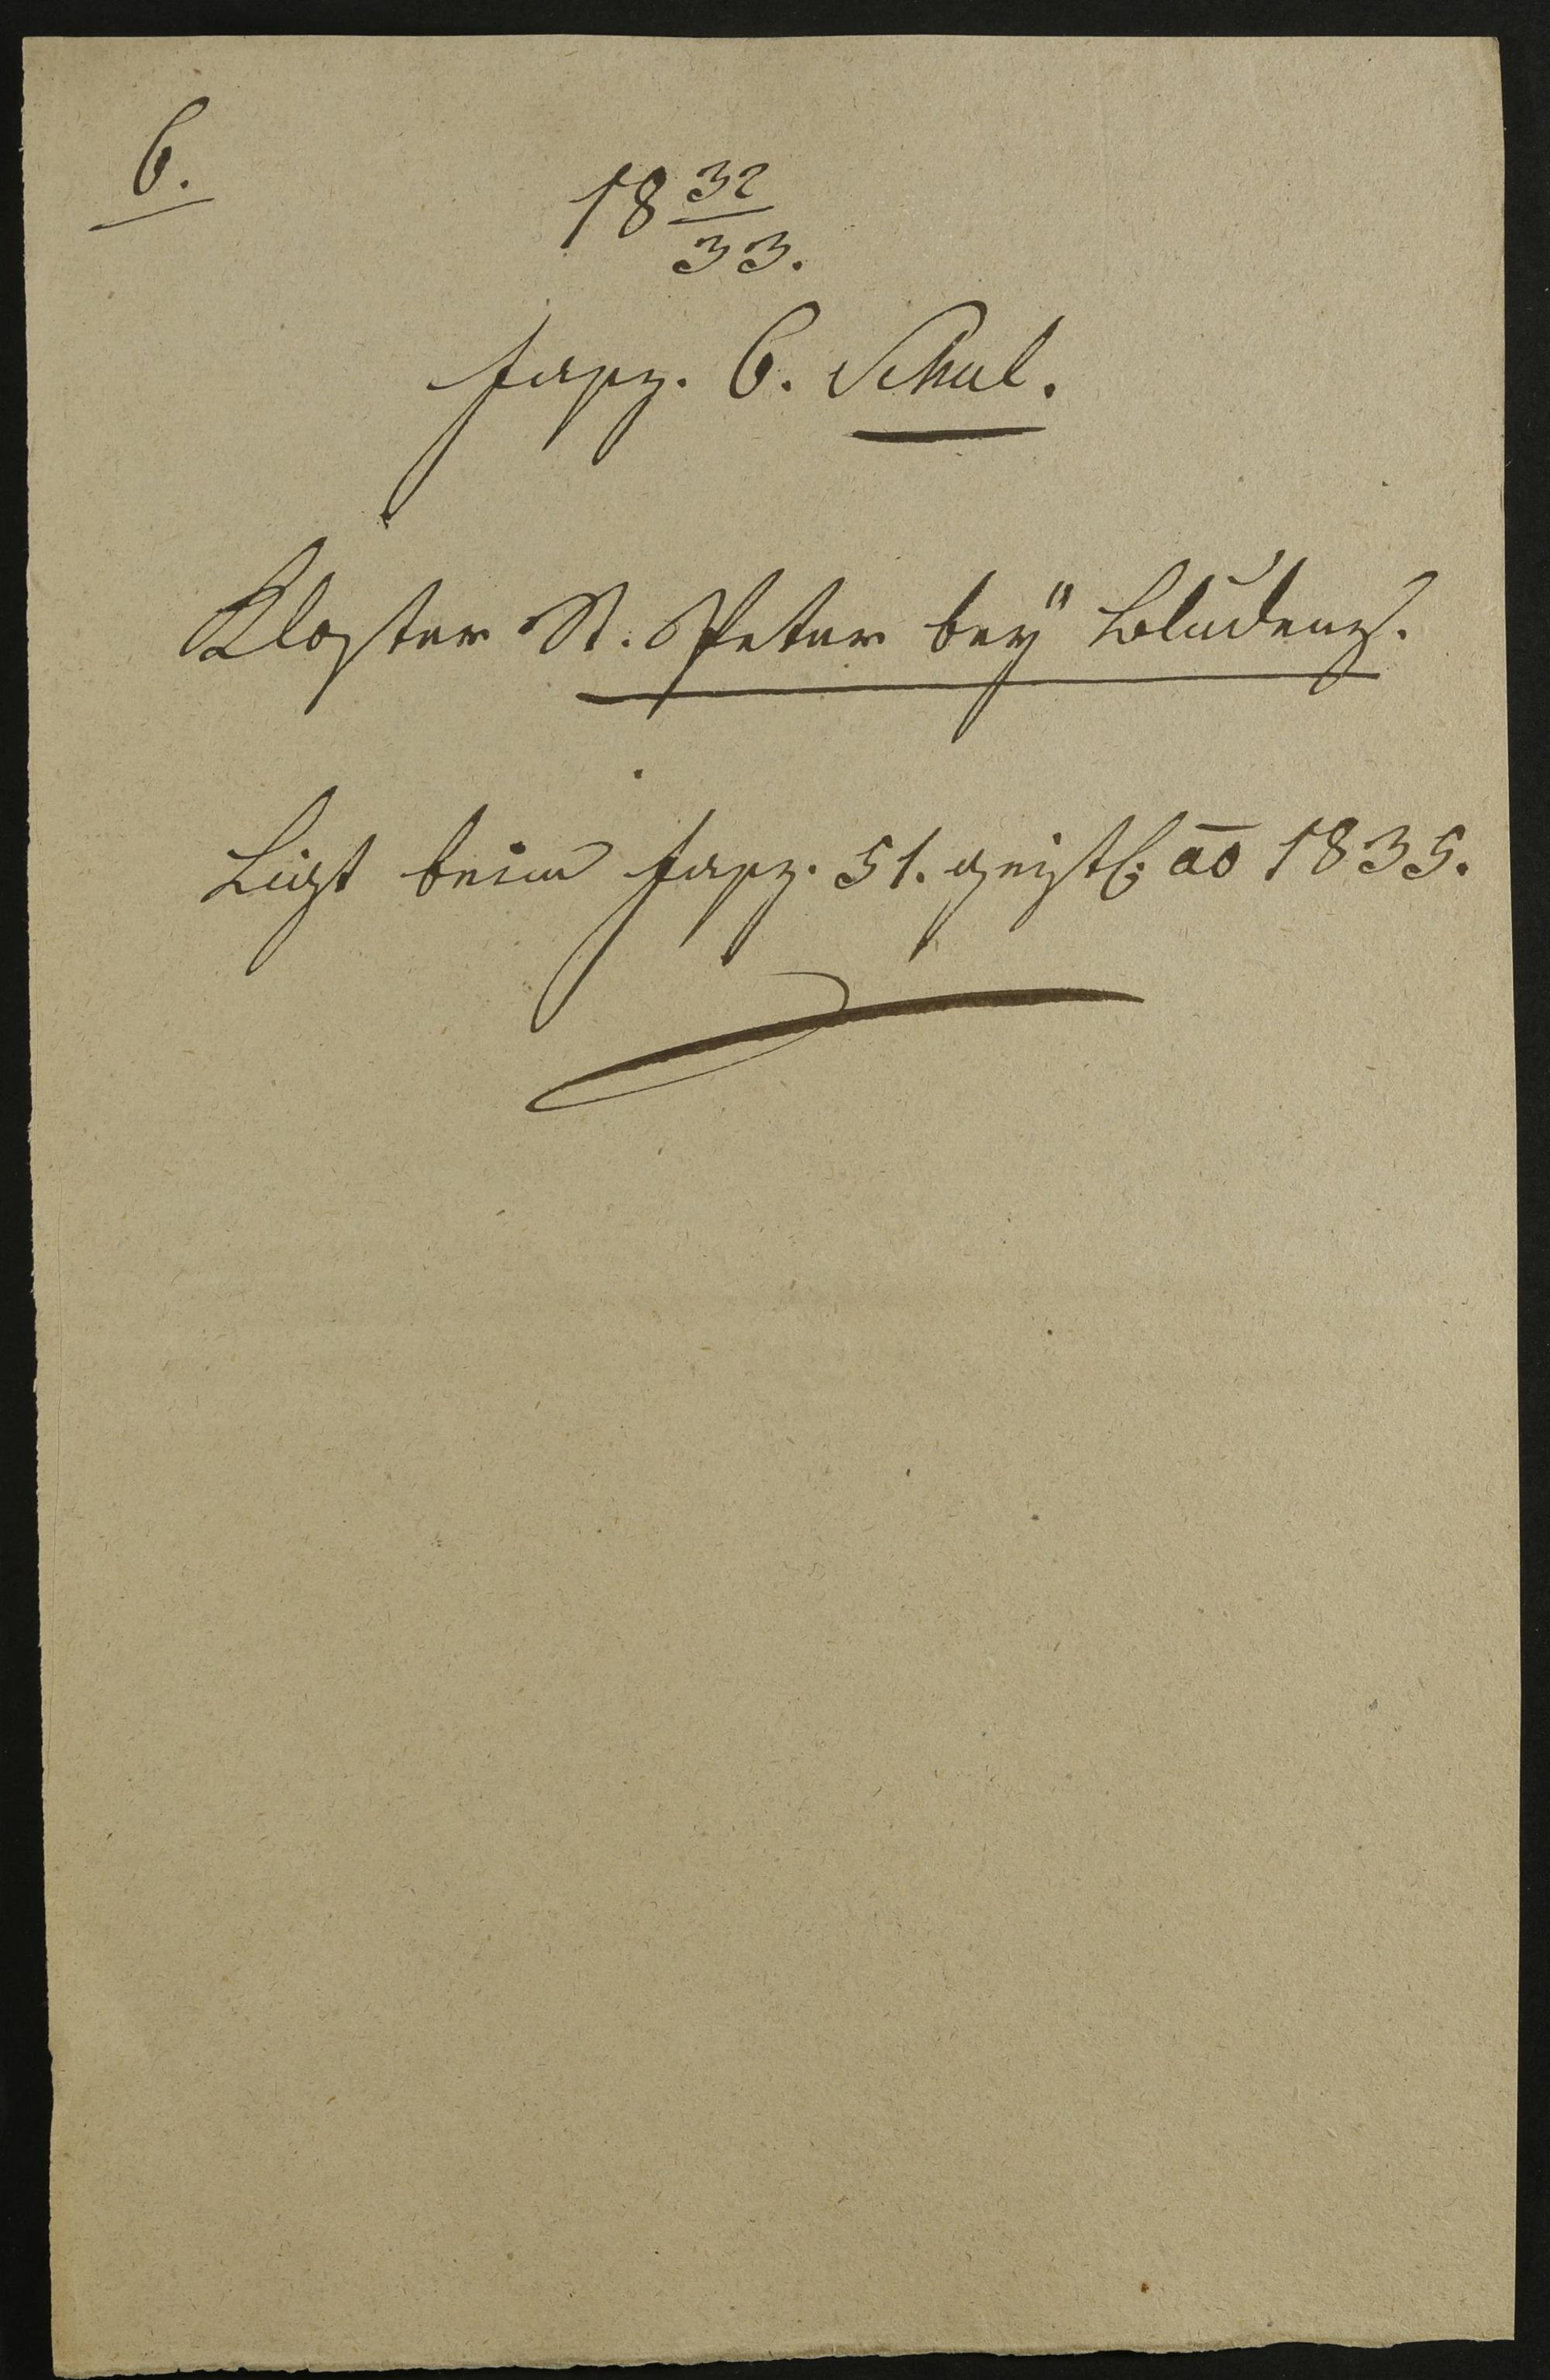 6.
18 32/33.
fasz. 6. Schul.
Kloster St. Peter beÿ Bludenz.
Ligt beim fasz. 51. geistl. ao 1835.